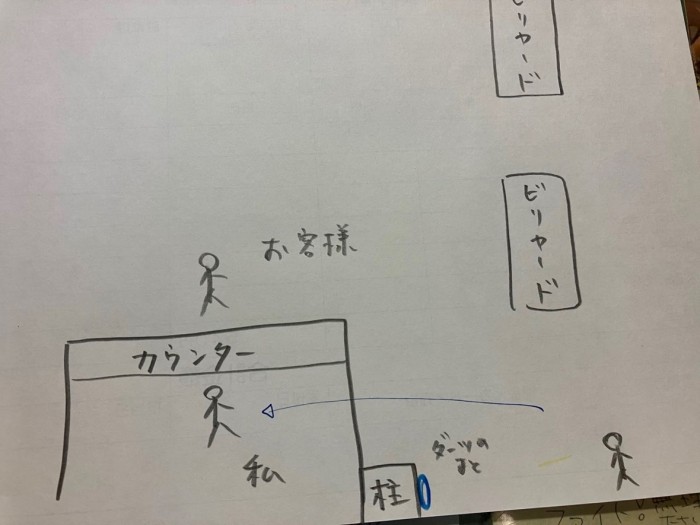 ビリヤード
ビリヤード
お客様
カウンター
私
ダーツの
まと
柱